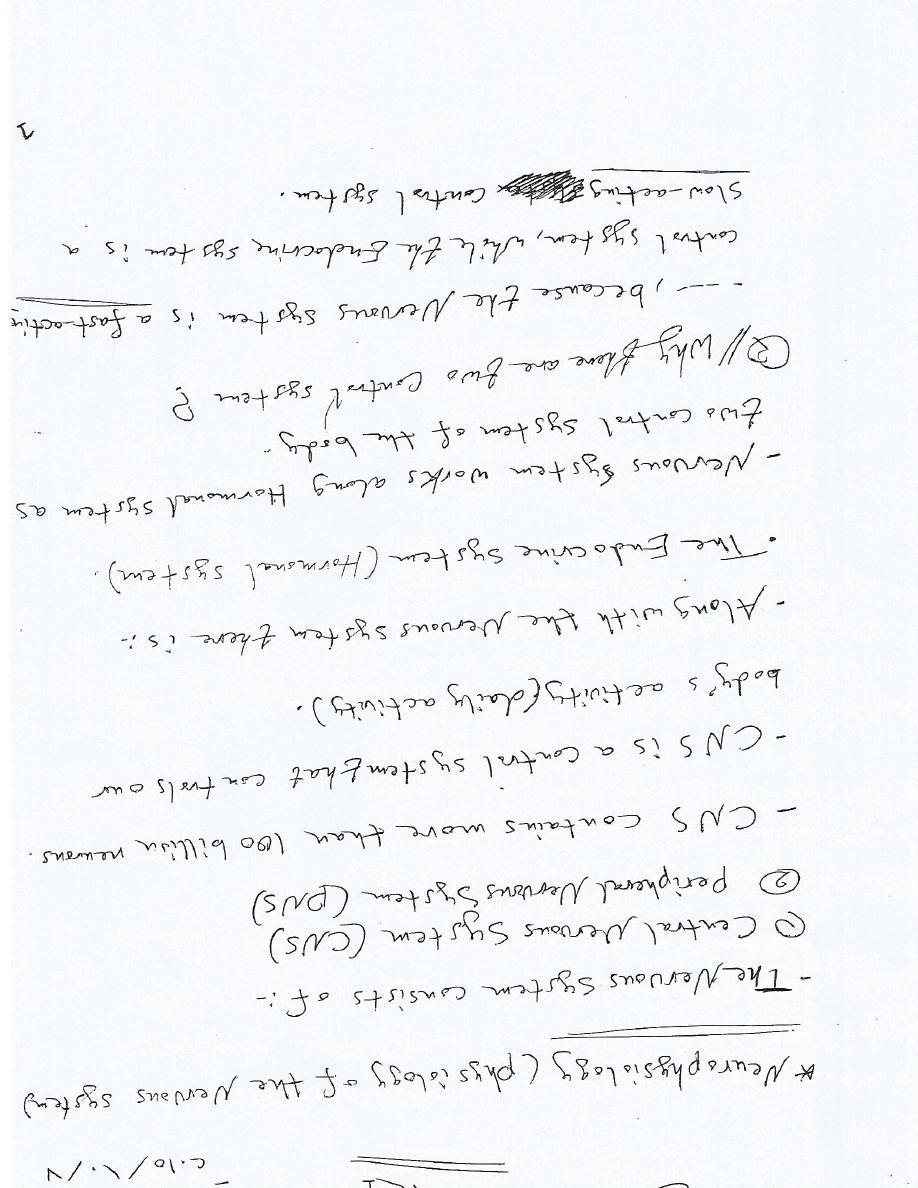 * Neurophysiology (physiology of the Nervous system)
- The Nervous System consists of :-
① Central Nervous System (CNS)
② Peripheral Nervous System (PNS)
- CNS contains more than 100 billion neurons.
- CNS is a control system that controls our
body's activity (daily activity).
- Along with the Nervous system there is :-
• The Endocrine System (Hormonal system).
- Nervous System works along Hormonal system as
two control system of the body.
Why there are two control system ?
- ---, because the Nervous system is a fast-acting
control system, while the Endocrine system is a
slow-acting control system.
1